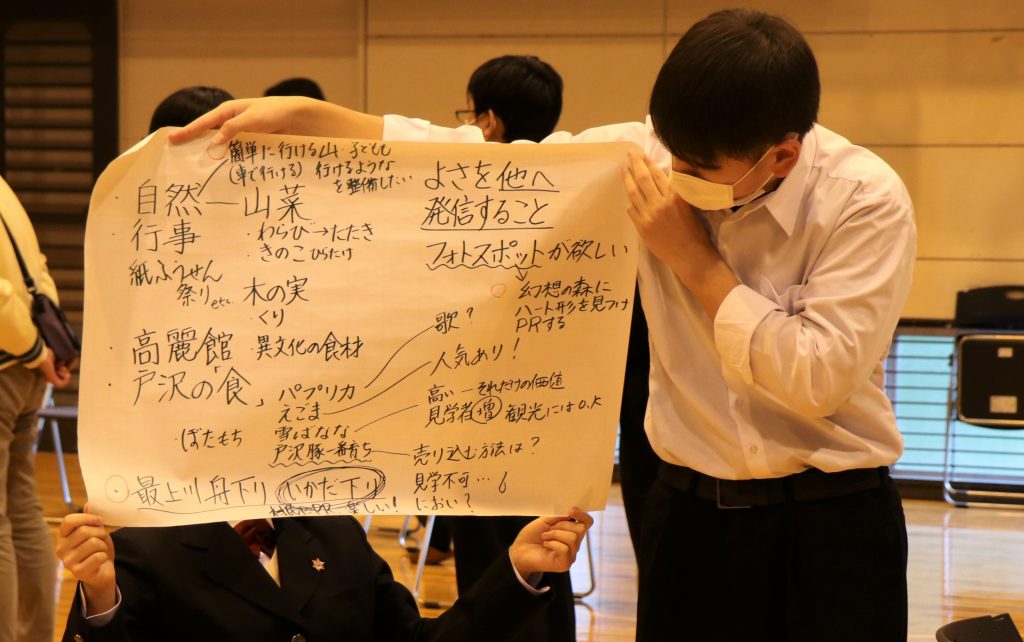 簡単に行ける山・子ども
(車で行ける) 行けるような
を整備したい
・自然ー山菜
・わらび→たたき
・きのこ ひらたけ
・行事
紙ふうせん
祭り etc.
木の実
・くり
・高麗館
・異文化の食材
・戸沢の食」
パプリカ
えごま
雪ばなな
戸沢豚一番育ち
・ぼたもち
最上川舟下り いかだ下り
楽しい!
よさを他へ
発信すること
フォトスポットが欲しい
幻想の森に
ハート形を見つけ
PRする
歌?
人気あり!
高い ーそれだけの価値
見学者増 観光にはO.K
売り込む方法は?
見学不可…
におい?